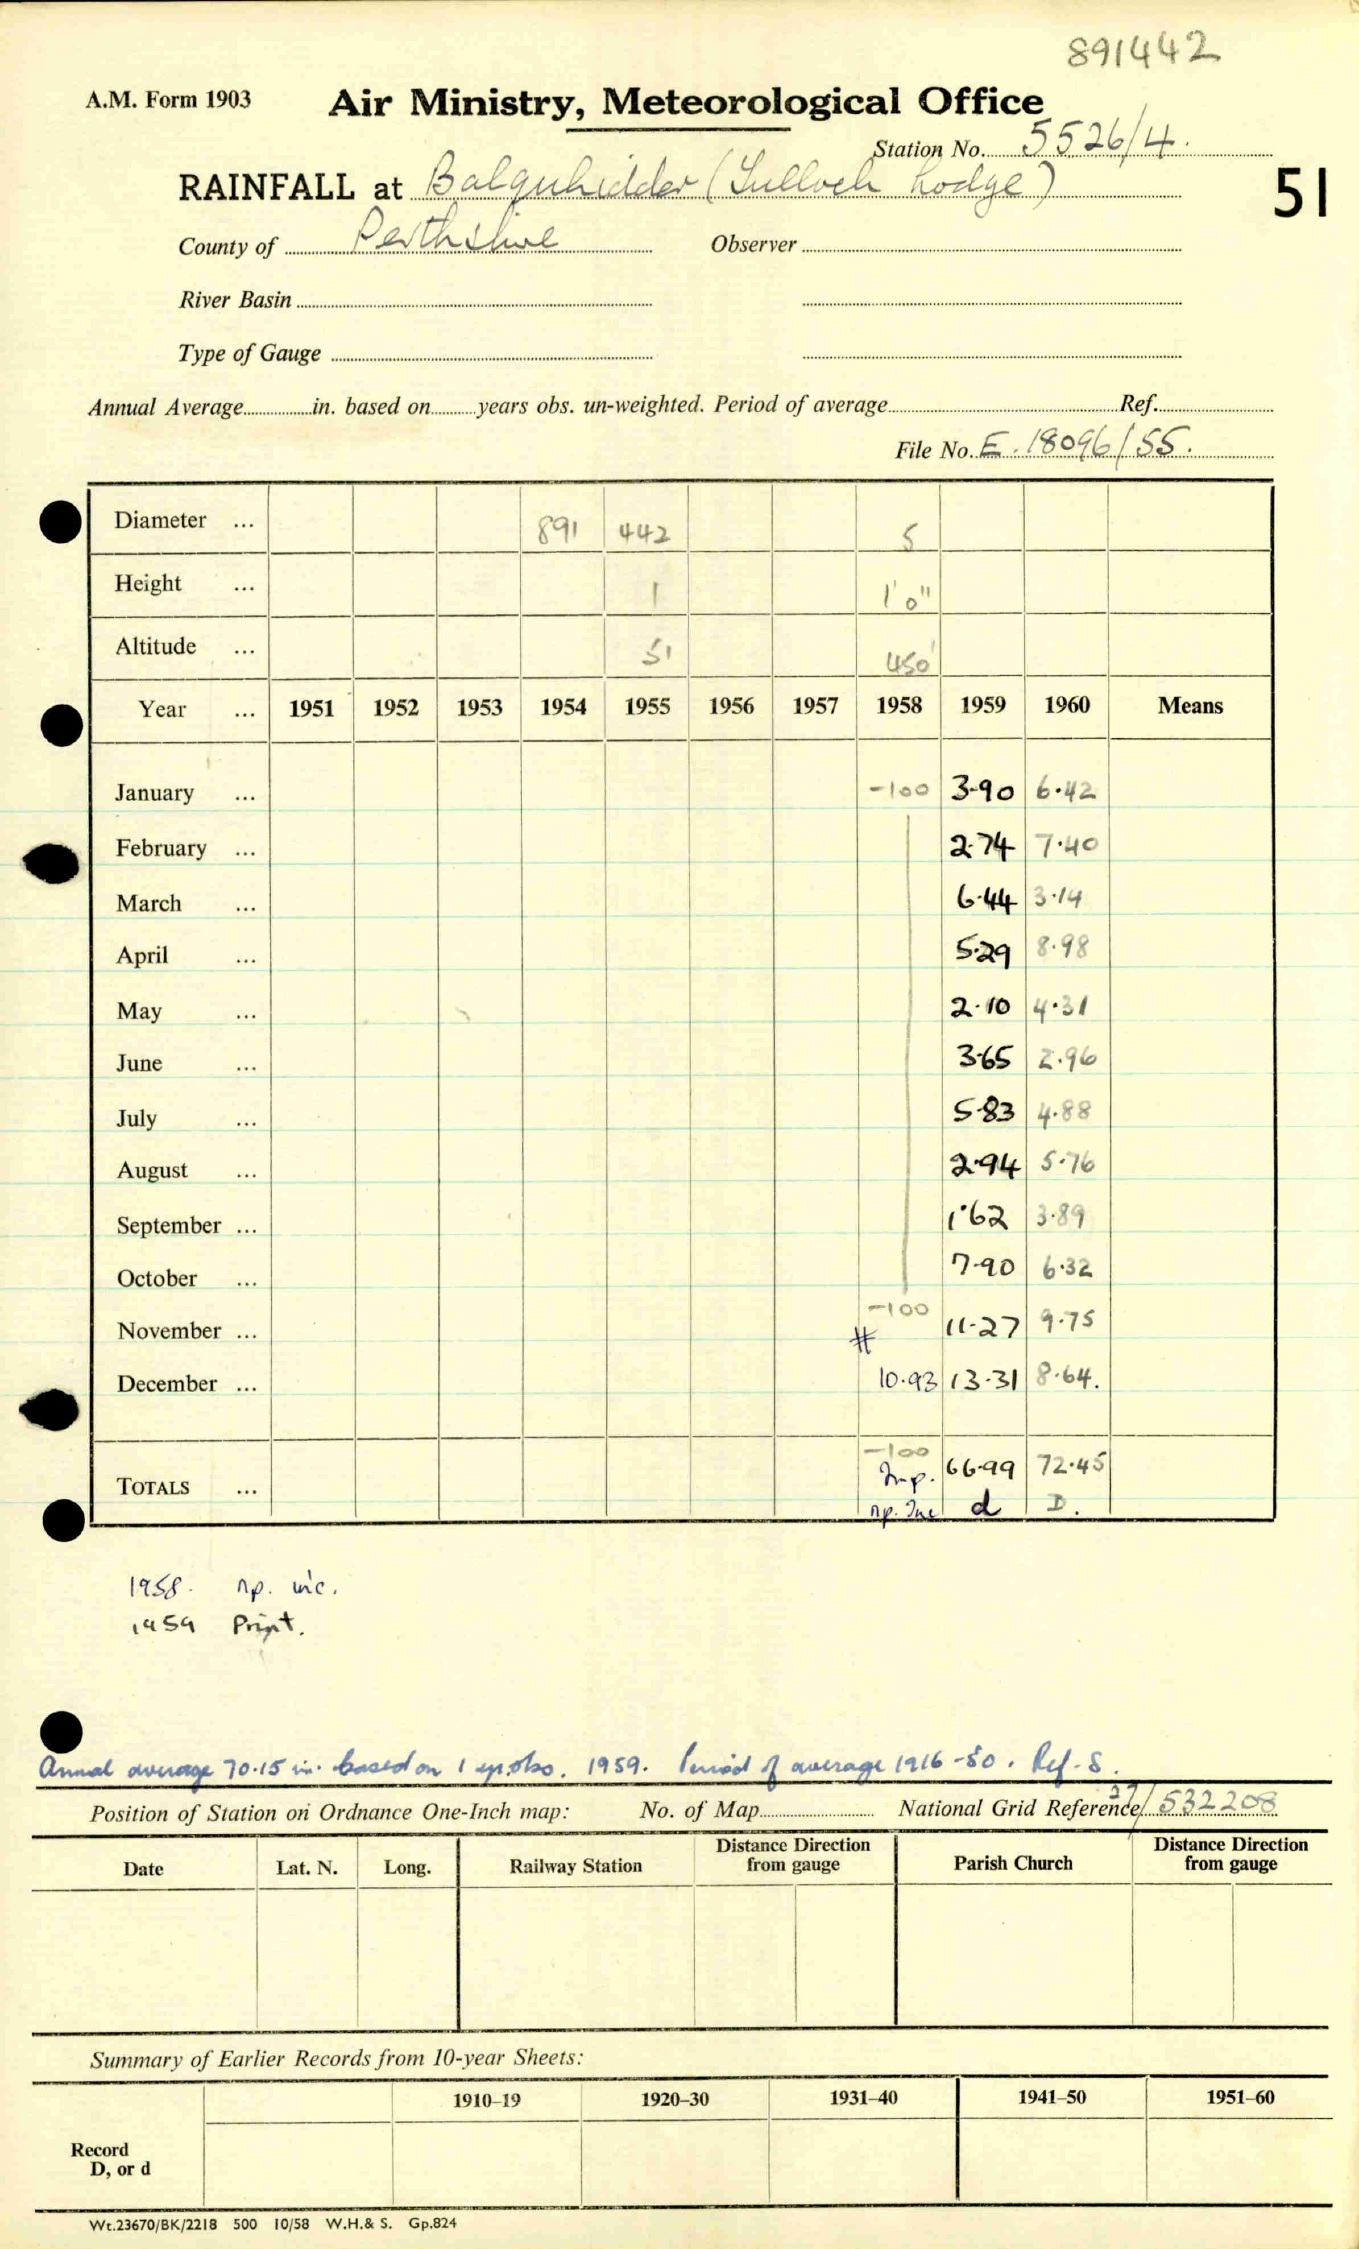 891442
A.M. Form 1903 Air Ministry, Meteorological Office
Station No. 5526/4.
RAINFALL at Balquhidder (Tulloch Lodge) 51
County of Perthshire Observer
River Basin
Type of Gauge
Annual Average in. based on years obs. un-weighted. Period of average Ref.
File No. E.18096/55.
Diameter ... 891 442 5
Height ... 1 1'0"
Altitude ... 51 450'
Year ... 1951 1952 1953 1954 1955 1956 1957 1958 1959 1960 Means
January ... -100 3.90 6.42
February ... 2.74 7.40
March ... 6.44 3.14
April ... 5.29 8.98
May ... 2.10 4.31
June ... 3.65 2.96
July ... 5.83 4.88
August ... 2.94 5.76
September ... 1.62 3.89
October ... 7.90 6.32
-100
November ... # 11.27 9.75
December ... 10.93 13.31 8.64.
-100
TOTALS ... Imp. 66.99 72.45
np. Inc d D.
1958. np. inc.
1959 Print.
Annual average 70.15 in. based on 1 yr. obs. 1959. Period of average 1916-50. Ref. S.
Position of Station on Ordnance One-Inch map: No. of Map National Grid Reference 27/532208
Date Lat. N. Long. Railway Station Distance Direction from gauge Parish Church Distance Direction from gauge
Summary of Earlier Records from 10-year Sheets:
1910–19 1920–30 1931–40 1941–50 1951–60
Record
D, or d
Wt.23670/BK/2218 500 10/58 W.H.& S. Gp.824